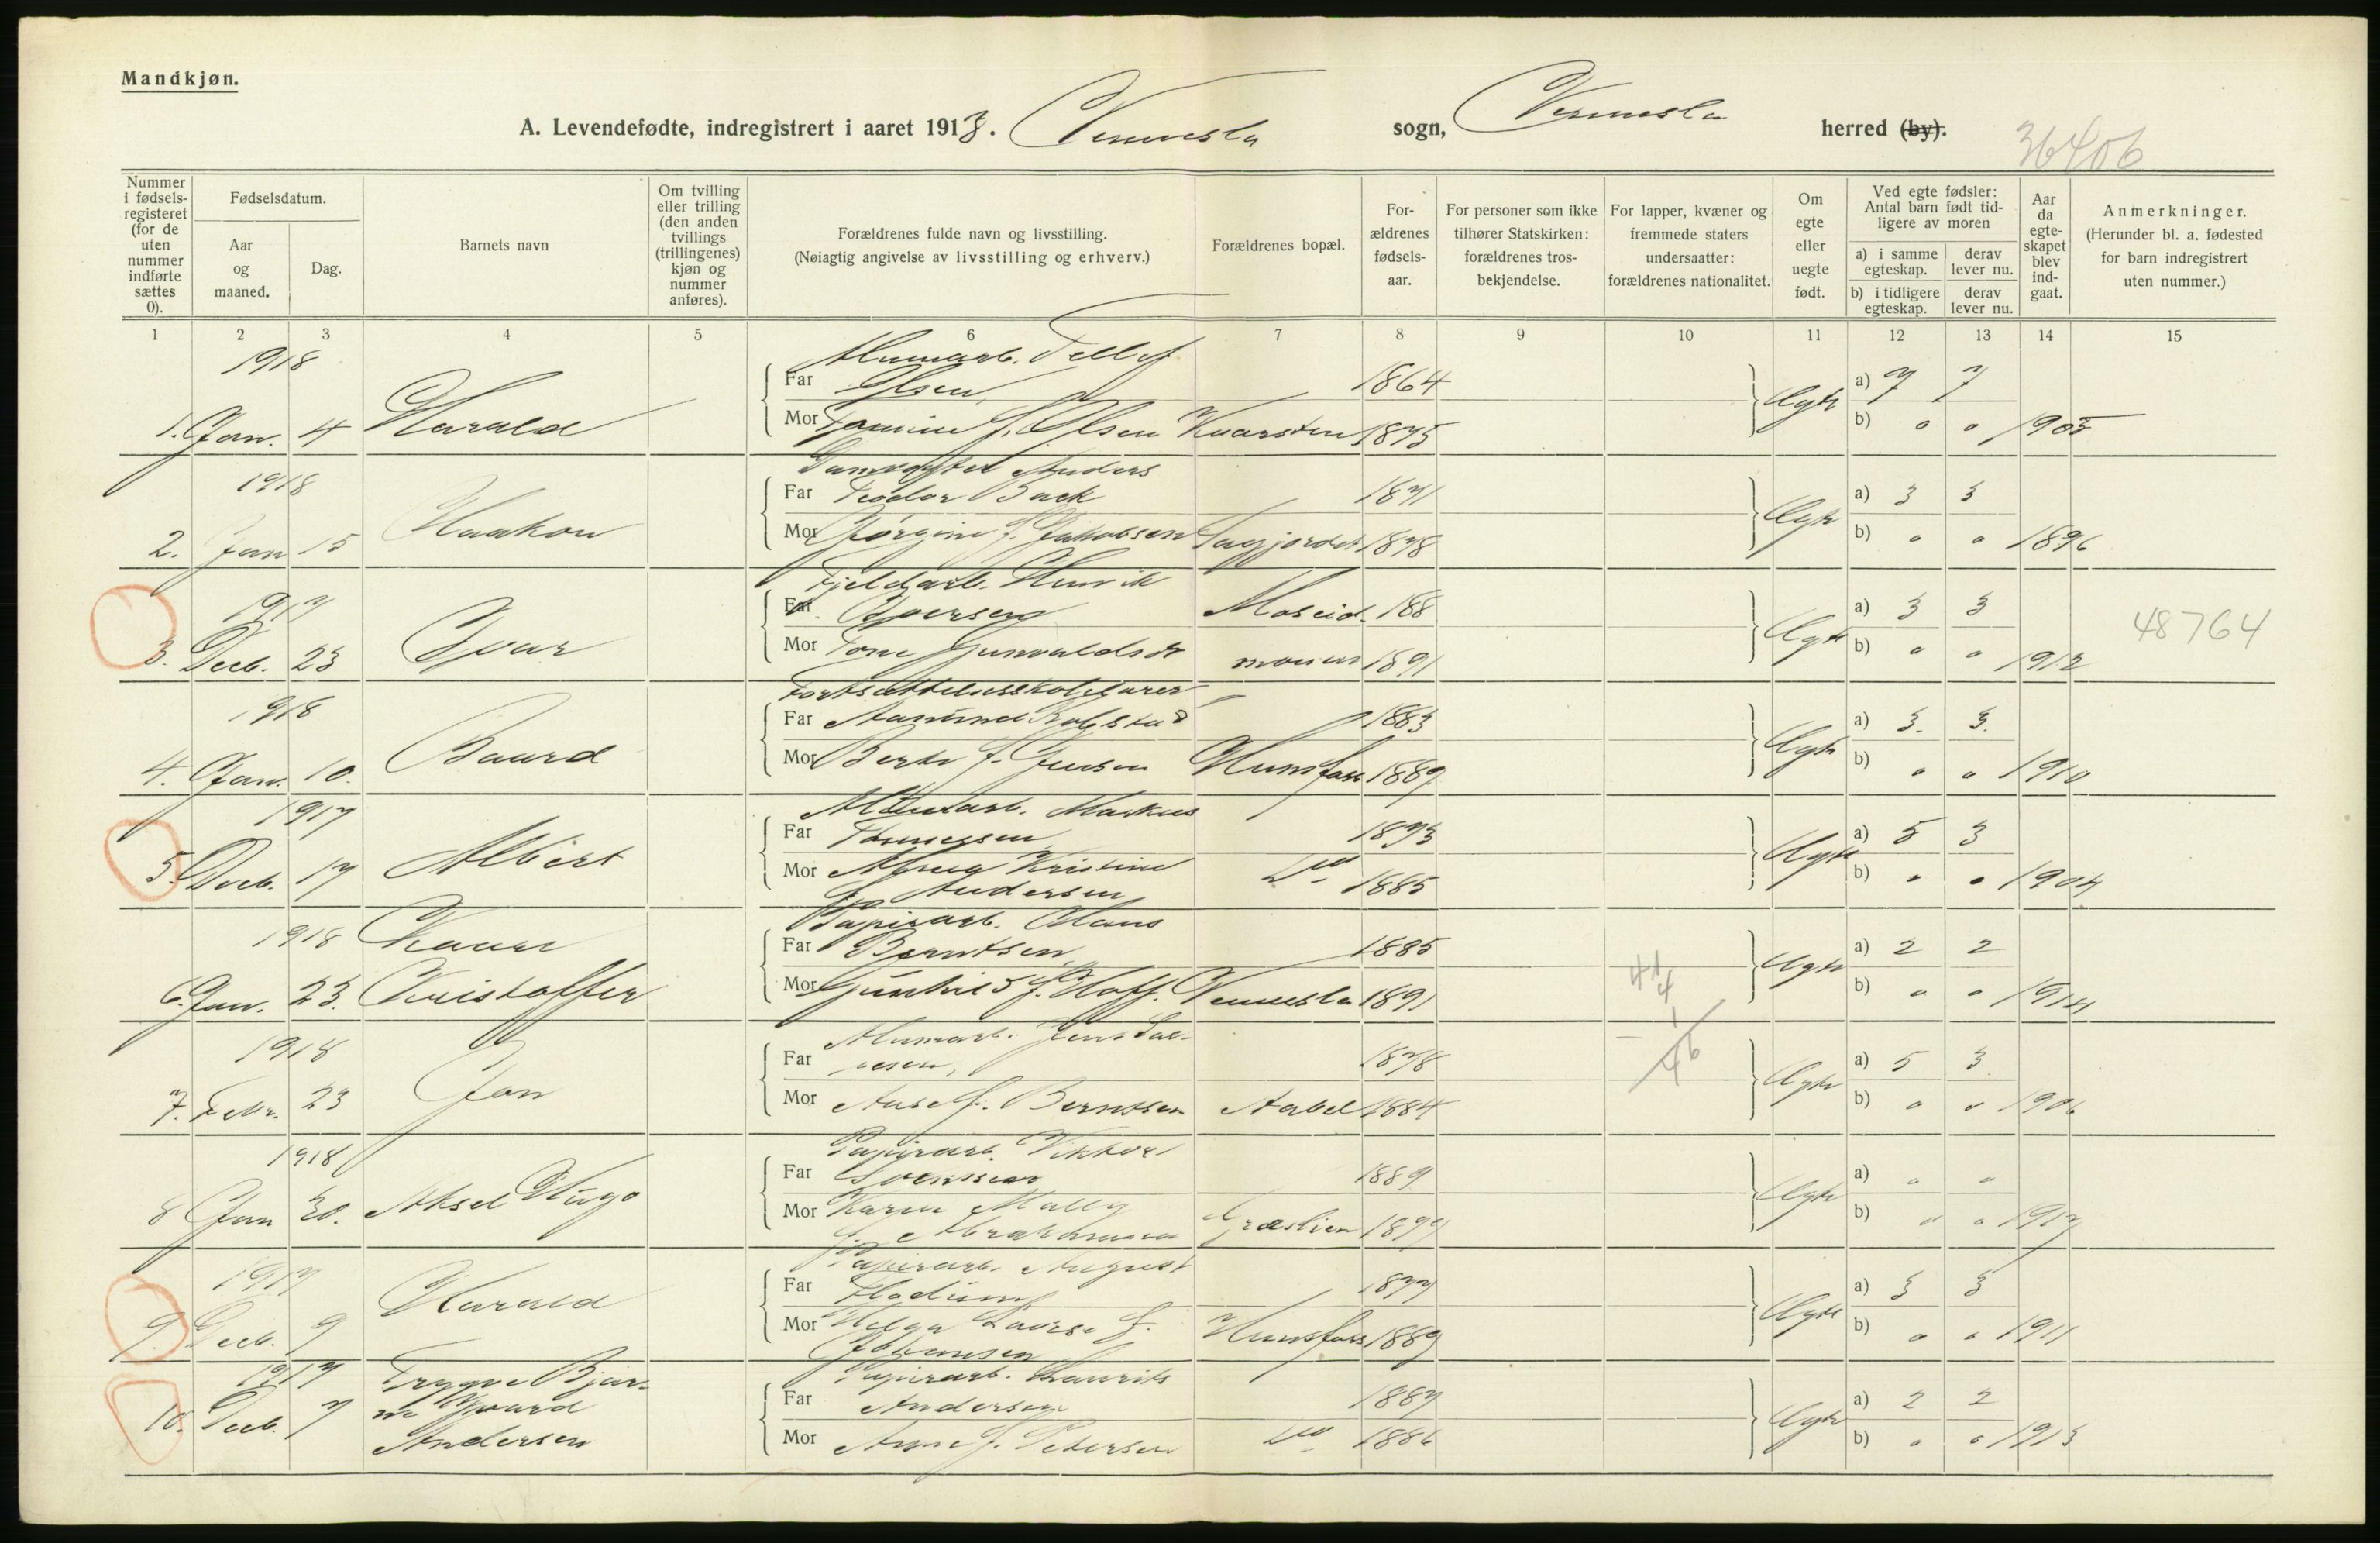 Mandkjøn.
A. Levendefødte, indregistrert i aaret 1918. Vennesla sogn, Vennesla herred (by).
36406
Nummer i fødselsregisteret (for de uten nummer indførte sættes 0).
Fødselsdatum.
Aar og maaned.
Dag.
Barnets navn
Om tvilling eller trilling (den anden tvillings (trillingenes) kjøn og nummer anføres).
Forældrenes fulde navn og livsstilling.
(Nøiagtig angivelse av livsstilling og erhverv.)
Forældrenes bopæl.
Forældrenes fødselsaar.
For personer som ikke tilhører Statskirken: forældrenes trosbekjendelse.
For lapper, kvæner og fremmede staters undersaatter: forældrenes nationalitet.
Om egte eller uegte født.
Ved egte fødsler: Antal barn født tidligere av moren
a) i samme egteskap.
derav lever nu.
b) i tidligere egteskap.
derav lever nu.
Aar da egteskapet blev indgaat.
Anmerkninger.
(Herunder bl. a. fødested for barn indregistrert uten nummer.)
1 2 3 4 5 6 7 8 9 10 11 12 13 14 15
1918 Alumarb. Tellef
Far Olsen 1864 a) 7 7
1. Jan. 4 Harald Mor f. Olsen Kvarsten 1875 Egte b) " " 1905
1918 Anders
Far Teodor Back 1871 a) 3 3
2. Jan 15 Haakon Mor Jørgine f. Jakobsen 1878 Egte b) " " 1896
1917 Fjeldarb. Henrik
Far Iversen Moseid. 188 a) 3 3 48764
3. Decb. 23 Ivar Mor Tone Gunvaldsdt 1891 Egte b) " " 1912
1918 Fortsættelsesskolelærer
Far Aasmund 1883 a) 3. 3.
4. Jan. 10. Baard Mor Berte f. Jensen Hunsfoss 1889 Egte b) " " 1910
1917 Markus
Far 1873 a) 5 3
5. Decb. 17 Albert Mor Kristine Do 1885 Egte b) " " 1904
f. Andersen
1918 Kaare Papirarb. Hans
Far Berntsen 1885 a) 2 2
6. Jan. 23. Kristoffer Mor Gunhild f. Hoff. Vennesla 1891 Egte b) " " 1914
1918 Alumarb. Jens Sal-
Far vesen, 1878 a) 5 3
7. Febr. 23 Jon Mor Aase f. Berntsen Aabel 1884 Egte b) " " 1906
1918 Papirarb. Viktor
Far Svenssen 1889 a) " "
8 Jan 30. Aksel Hugo Mor Karen Græslien 1899 Egte b) " " 1917
f. Abrahamsen
1917 Papirarb. August
Far Flodum 1877 a) 3 3
9. Decb. 9 Harald Mor Helga Lovise f. Hunsfoss 1889 Egte b) " " 1911
Johansen
1917 Trygve Bjar- Papirarb. Laurits
Far Andersen 1887 a) 2 2
10. Decb. 7 ne Mor Anne f. Petersen Do 1886 Egte b) " " 1913
Andersen